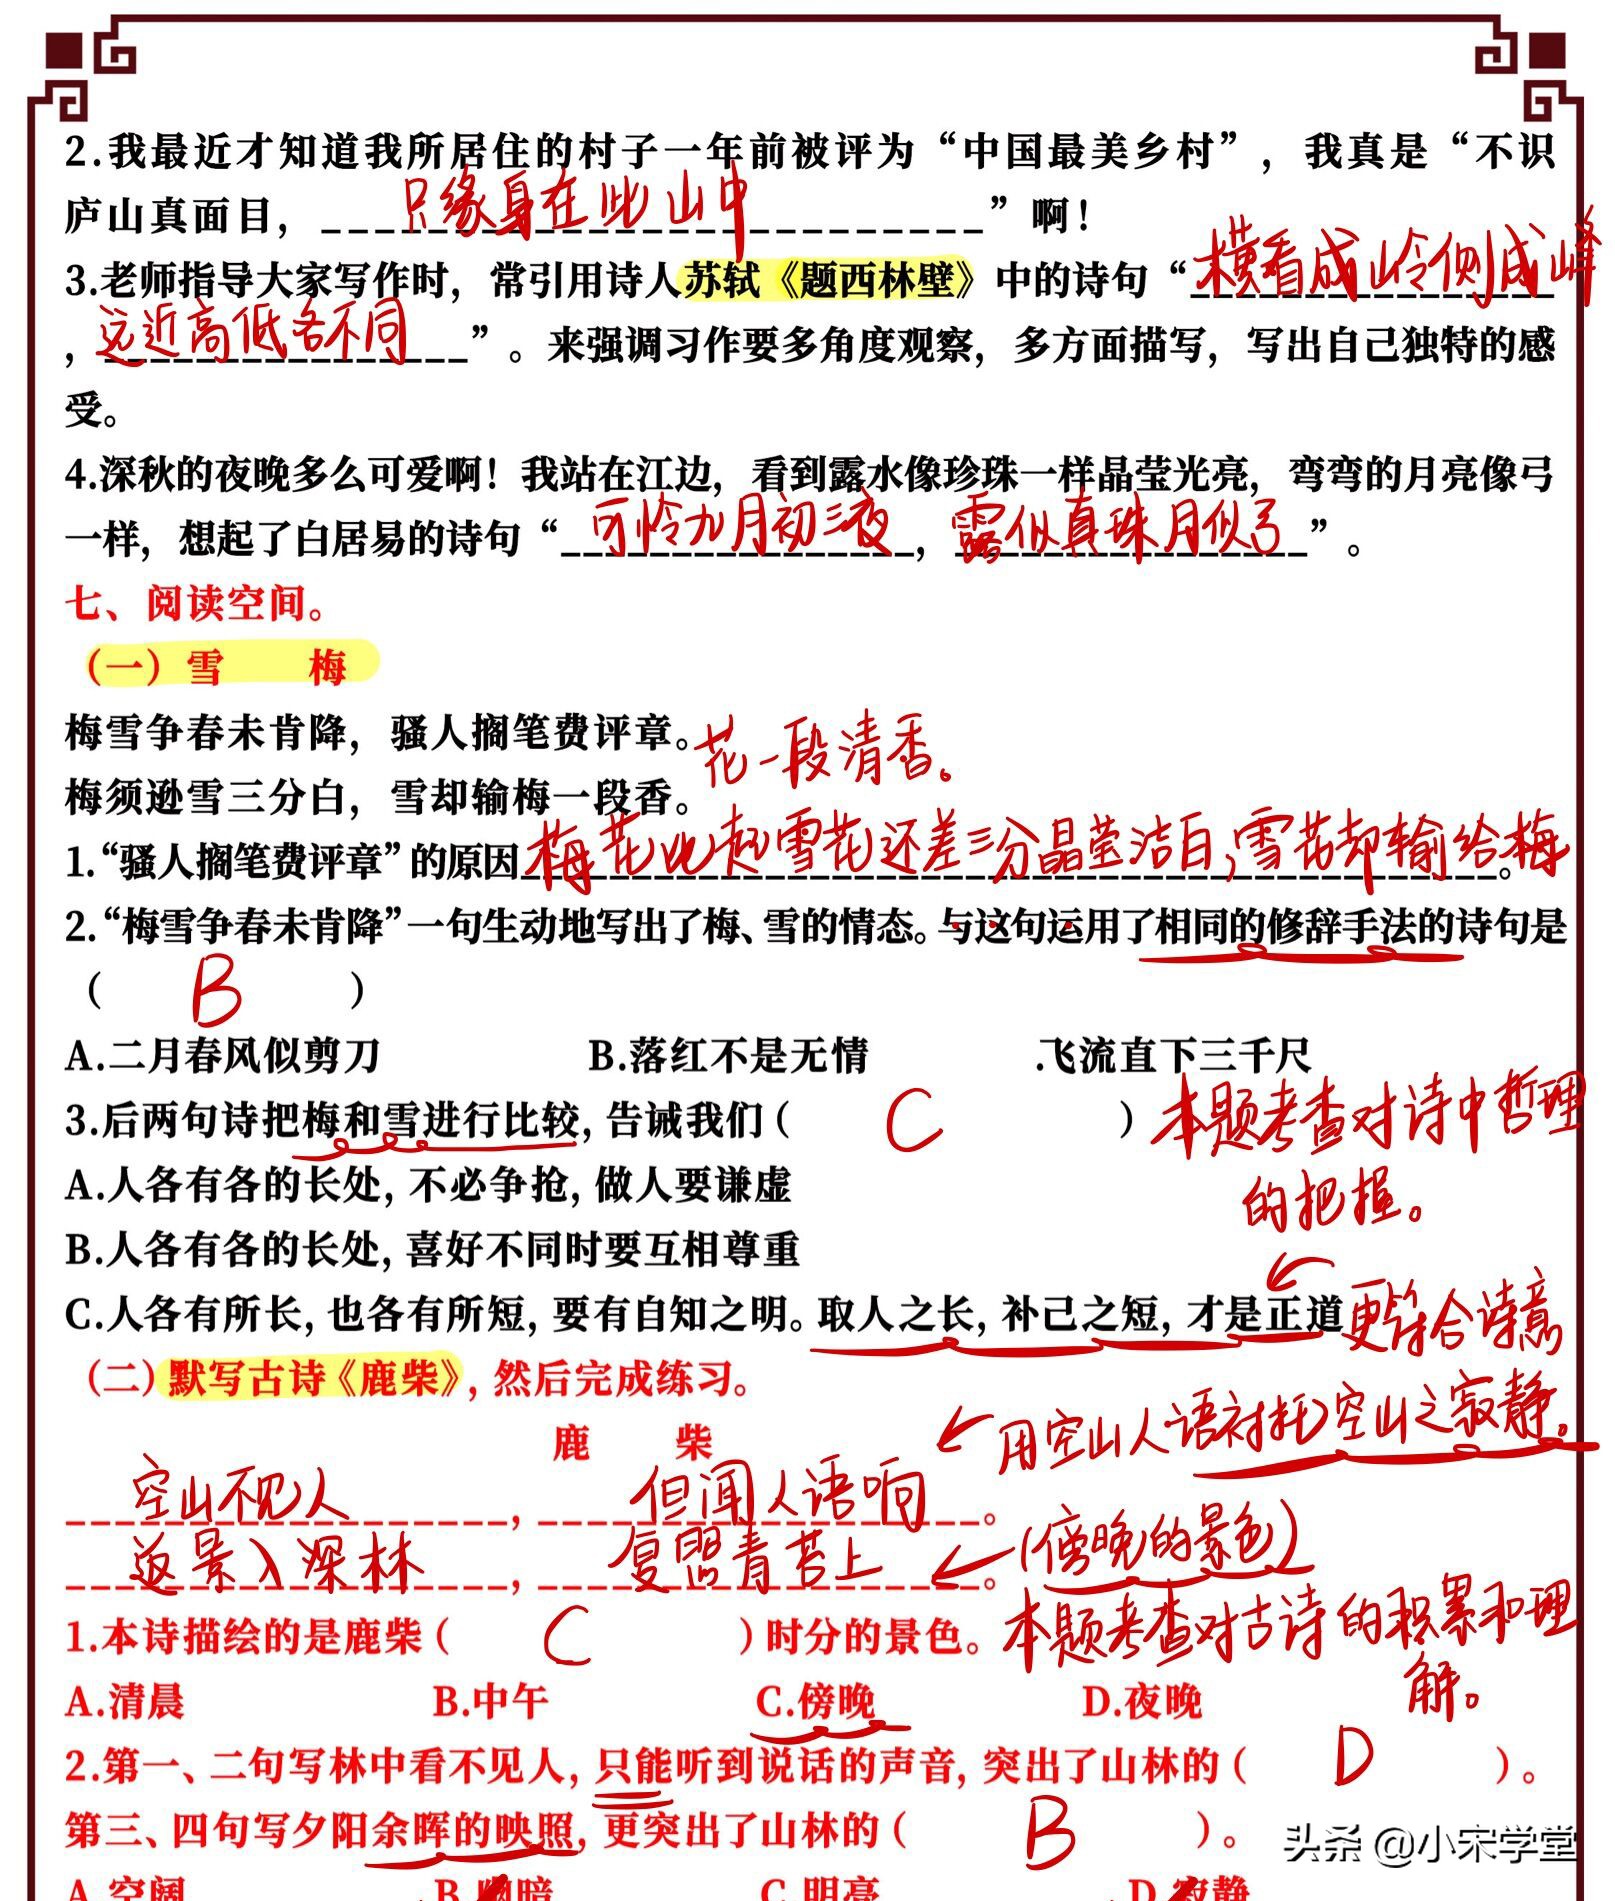 2.我最近才知道我所居住的村子一年前被评为“中国最美乡村”，我真是“不识
庐山真面目，只缘身在此山中”啊！
3.老师指导大家写作时，常引用诗人苏轼《题西林壁》中的诗句“横看成岭侧成峰
，远近高低各不同”。来强调习作要多角度观察，多方面描写，写出自己独特的感
受。
4.深秋的夜晚多么可爱啊！我站在江边，看到露水像珍珠一样晶莹光亮，弯弯的月亮像弓
一样，想起了白居易的诗句“可怜九月初三夜，露似真珠月似弓”。
七、阅读空间。
（一）雪 梅
梅雪争春未肯降，骚人搁笔费评章。
梅须逊雪三分白，雪却输梅一段香。
花一段清香。
1.“骚人搁笔费评章”的原因梅花比起雪花还差三分晶莹洁白，雪花却输给梅。
2.“梅雪争春未肯降”一句生动地写出了梅、雪的情态。与这句运用了相同的修辞手法的诗句是
（ B ）
A.二月春风似剪刀 B.落红不是无情 .飞流直下三千尺
3.后两句诗把梅和雪进行比较，告诫我们（ C ） 本题考查对诗中哲理
的把握。
A.人各有各的长处，不必争抢，做人要谦虚
B.人各有各的长处，喜好不同时要互相尊重
C.人各有所长，也各有所短，要有自知之明。取人之长，补己之短，才是正道 更符合诗意
（二）默写古诗《鹿柴》，然后完成练习。
鹿 柴 用空山人语衬托空山之寂静。
空山不见人，但闻人语响。
返景入深林，复照青苔上。 （傍晚的景色）
1.本诗描绘的是鹿柴（ C ）时分的景色。 本题考查对古诗的积累和理
解。
A.清晨 B.中午 C.傍晚 D.夜晚
2.第一、二句写林中看不见人，只能听到说话的声音，突出了山林的（ D ）。
第三、四句写夕阳余晖的映照，更突出了山林的（ B ）。
A.空阔 B.幽暗 C.明亮 D.寂静
头条 @小宋学堂